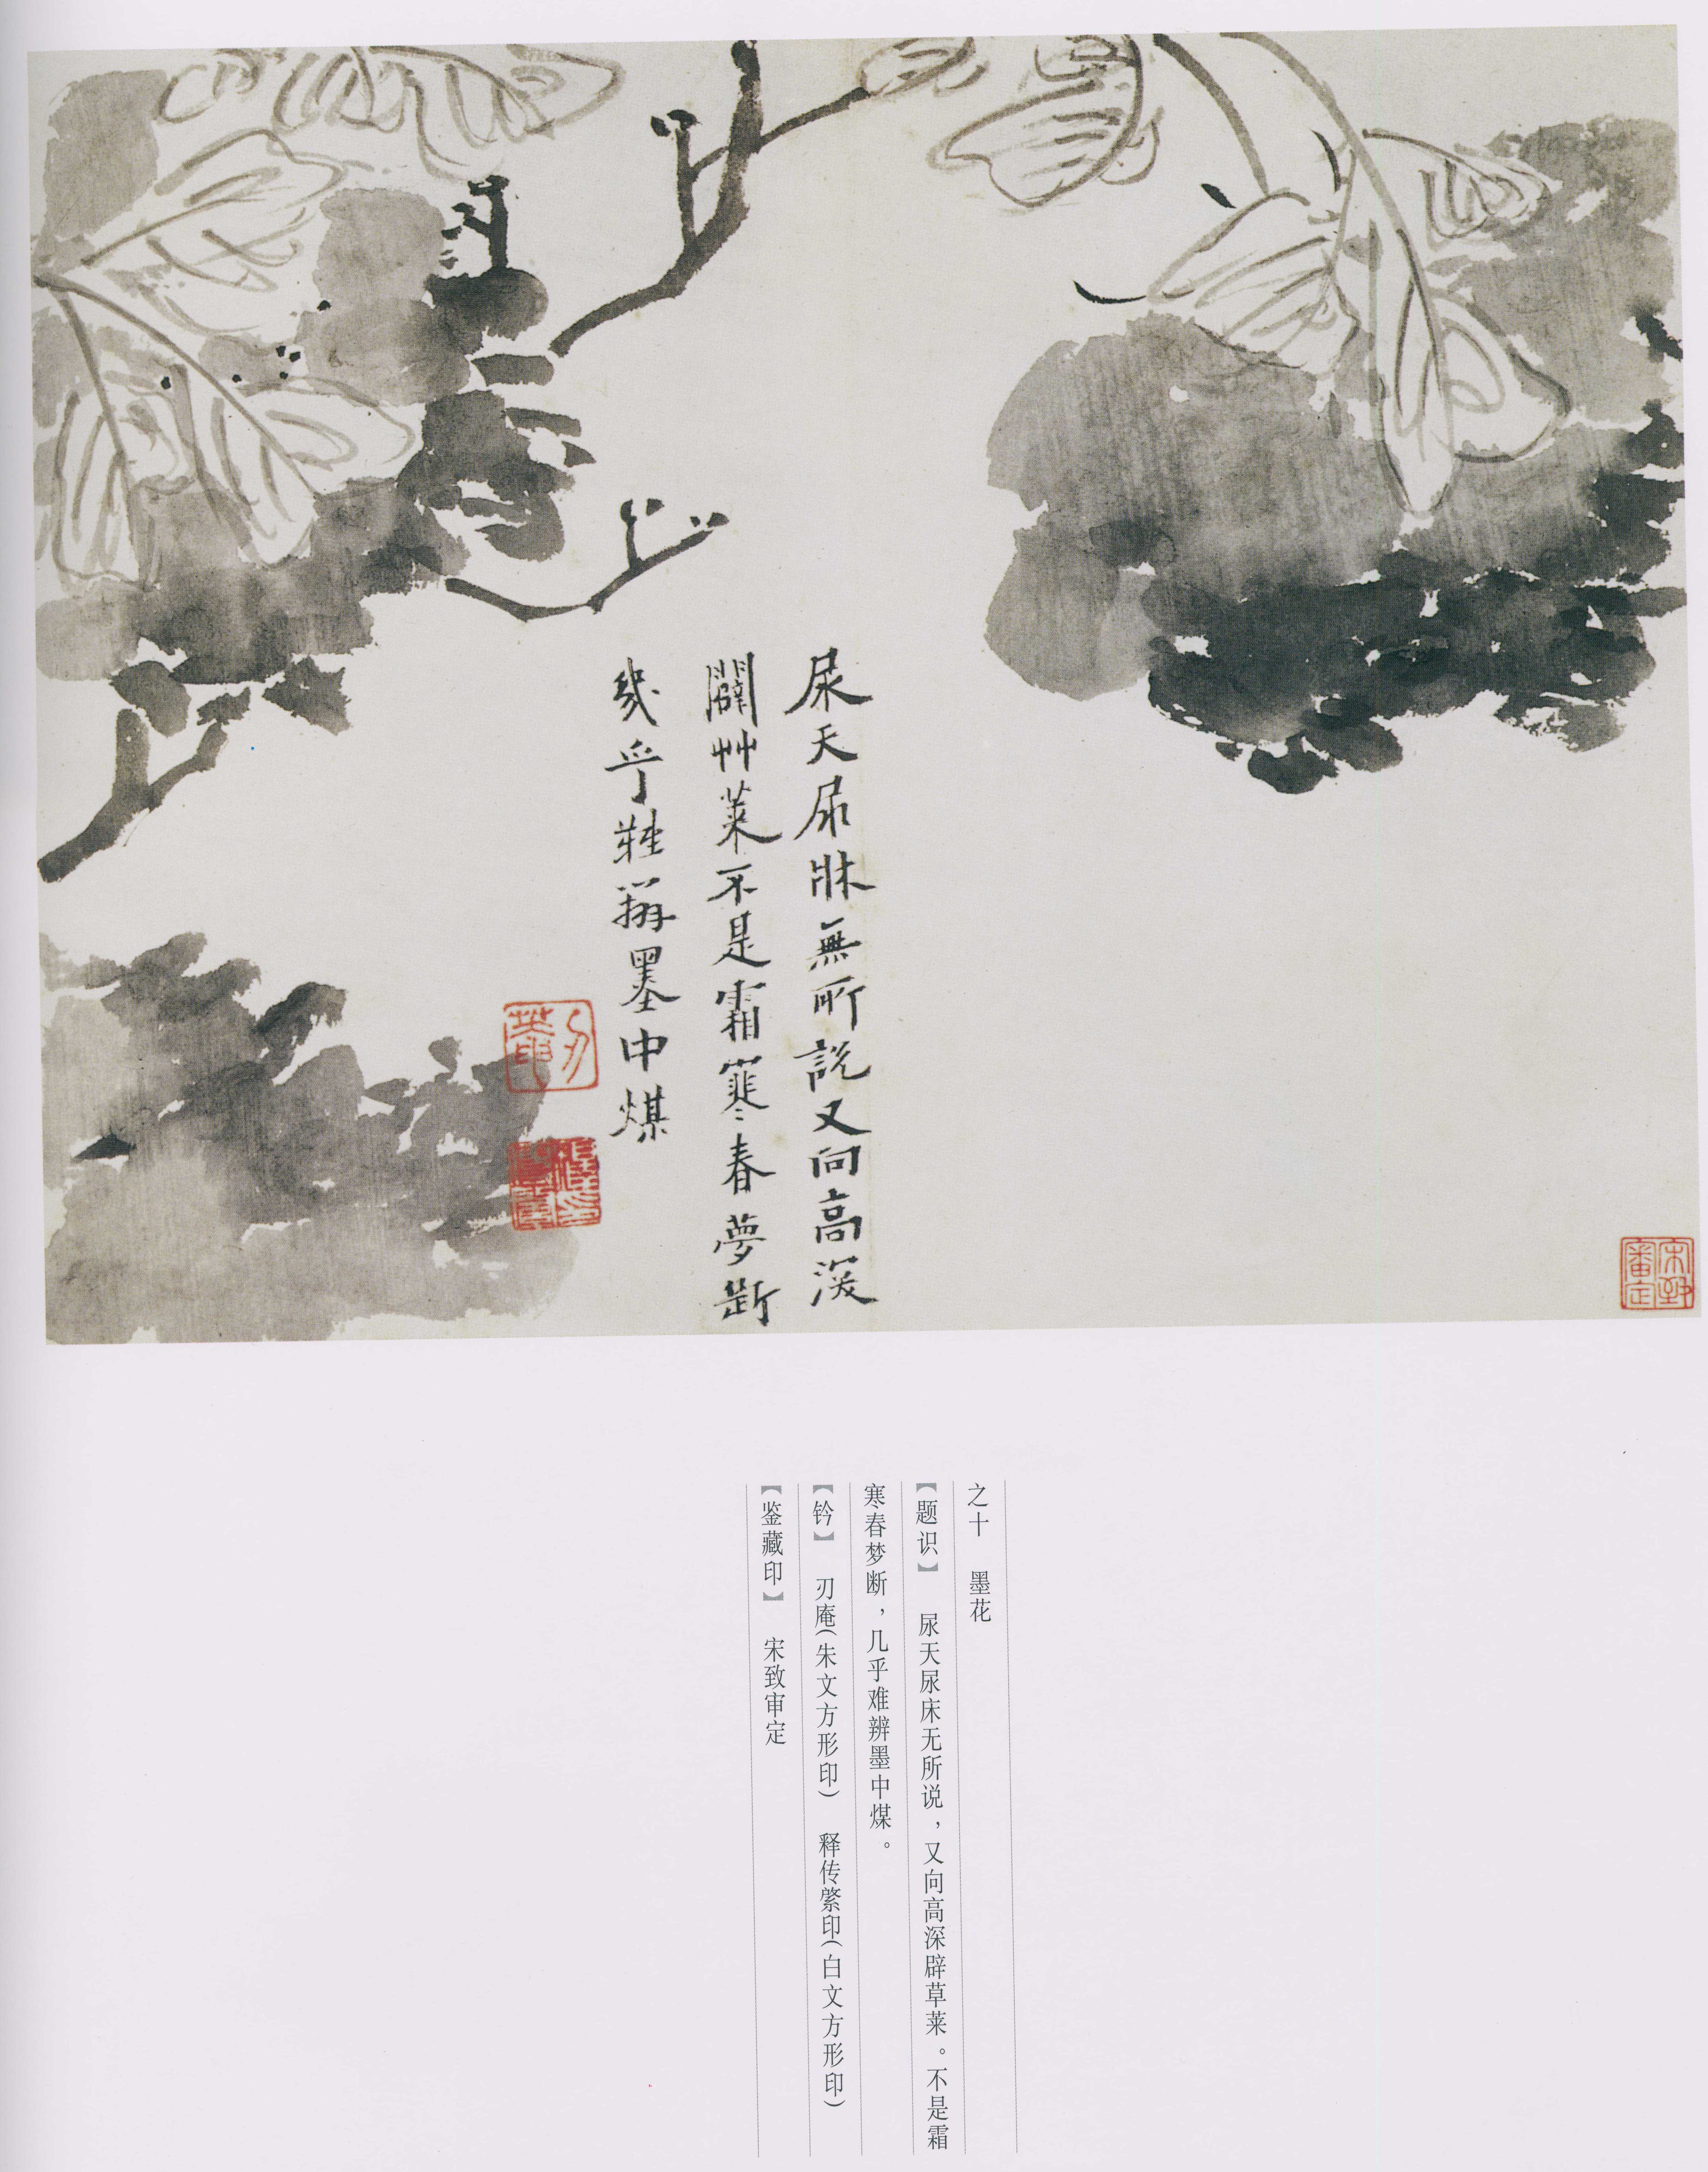 尿天尿牀無所説又向高深
闢艸萊不是霜寒春夢斷
幾乎難辨墨中煤
刃菴
釋傳綮印
宋致審定
之十　墨花
【题识】　尿天尿床无所说，又向高深辟草莱。不是霜
寒春梦断，几乎难辨墨中煤。
【钤】　刃庵(朱文方形印)　释传綮印(白文方形印)
【鉴藏印】　宋致审定